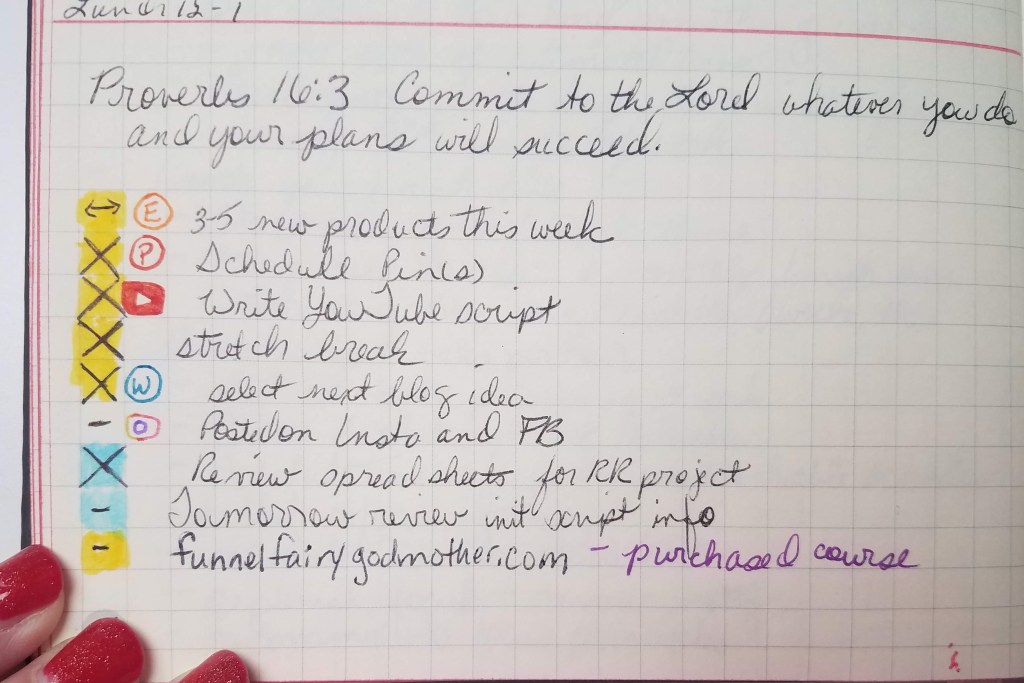 Lunch 12-1
Proverbs 16:3 Commit to the Lord whatever you do
and your plans will succeed.
E 3-5 new products this week
P Schedule Pin(s)
Write YouTube script
stretch break
W select next blog idea
Posted on Insta and FB
Review spreadsheets for RR project
Tomorrow review init script info
funnelfairygodmother.com - purchased course